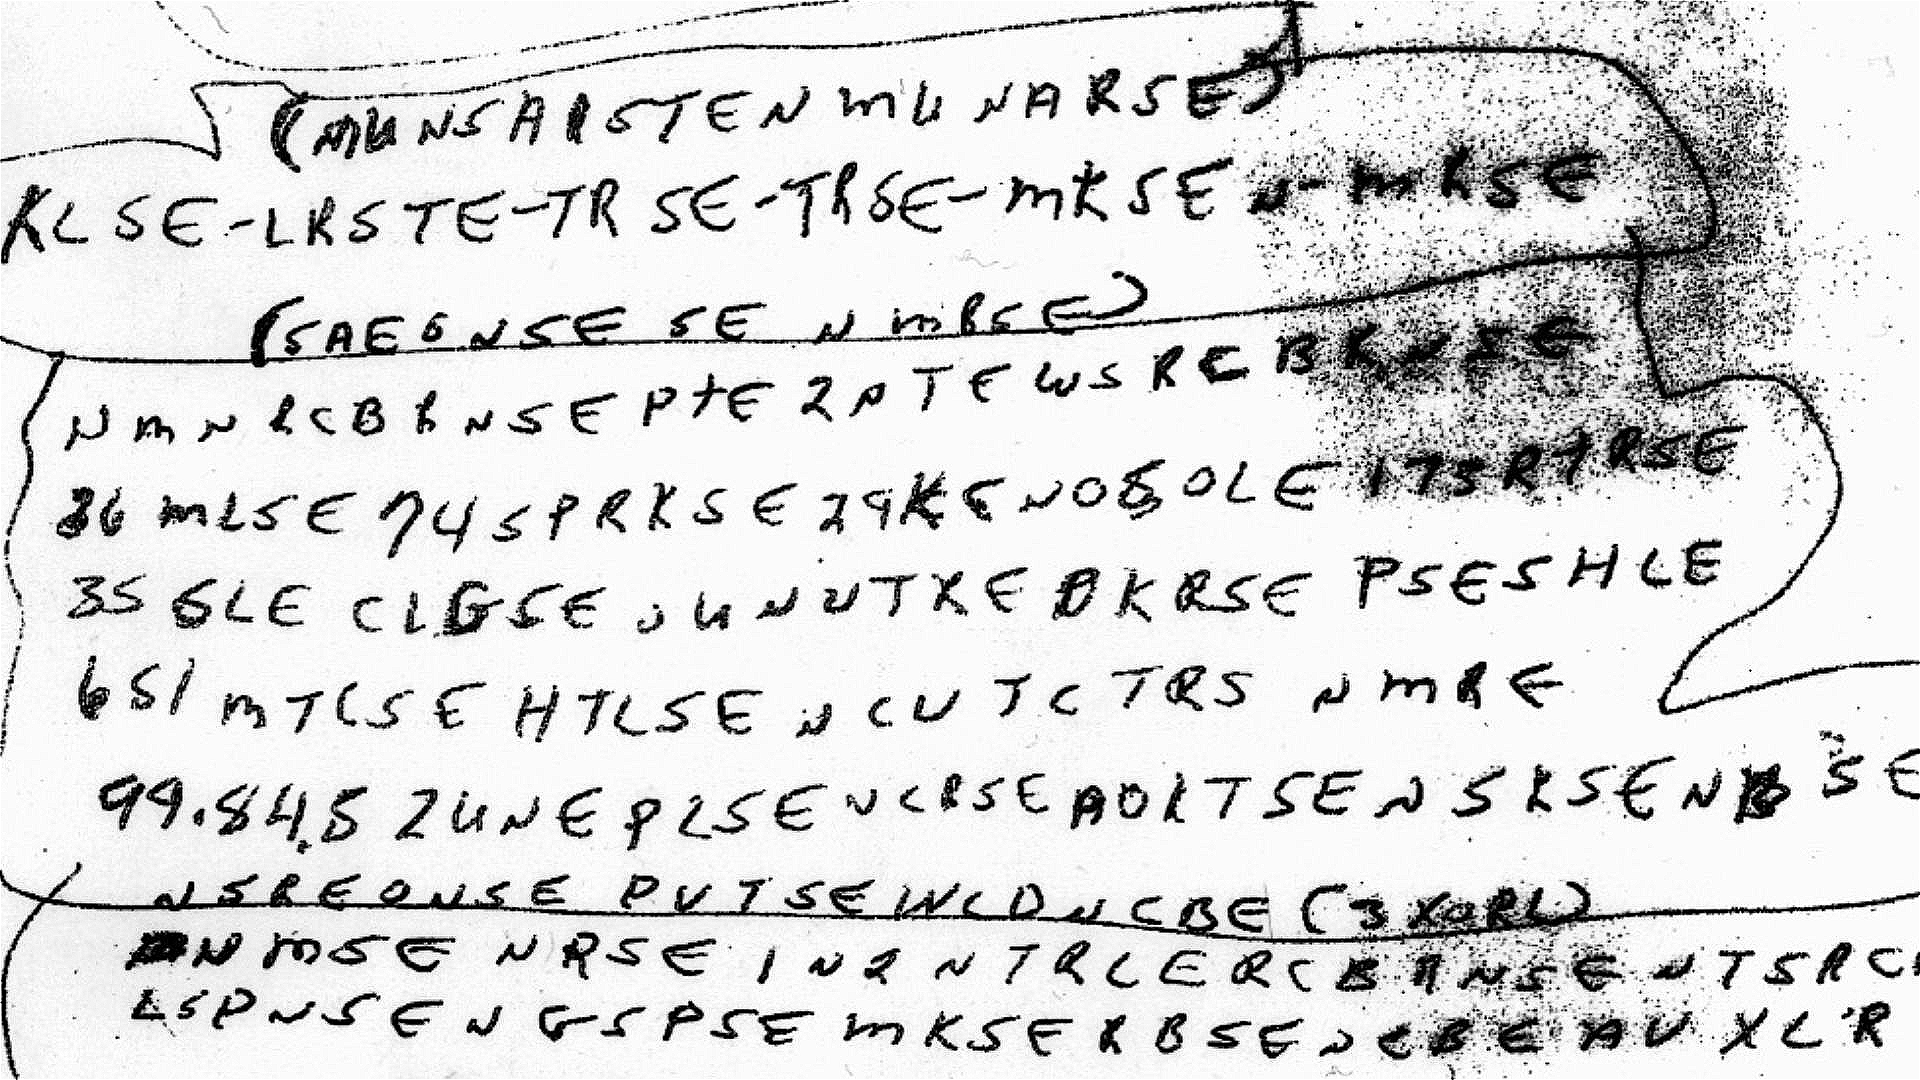 (MUNSAISTENMUNARSE)
KLSE-LRSTE-TRSE-TRSE-MKSEN-MRSE
(SAEGNSESE N MBSE)
NMNRCBRNSEPTE2PTEWSRCBRNSE
36MLSE74SPRKSE29KENOSOLE173RTRSE
35GLECLGSEUUNUTXEDKRSEPSESHLE
651MTCSEHTLSENCUTCTRSNMRE
99.84.5 2UNEPLSENCRSEAOKTSENSKSENBSE
NSREONSEPUTSEWLDNCBE(3XORL)
NMSENRSEIN2NTRLERCBRNSENTSRC
LSPNSENGSPSEMKSERBSENCBEAUXL'R